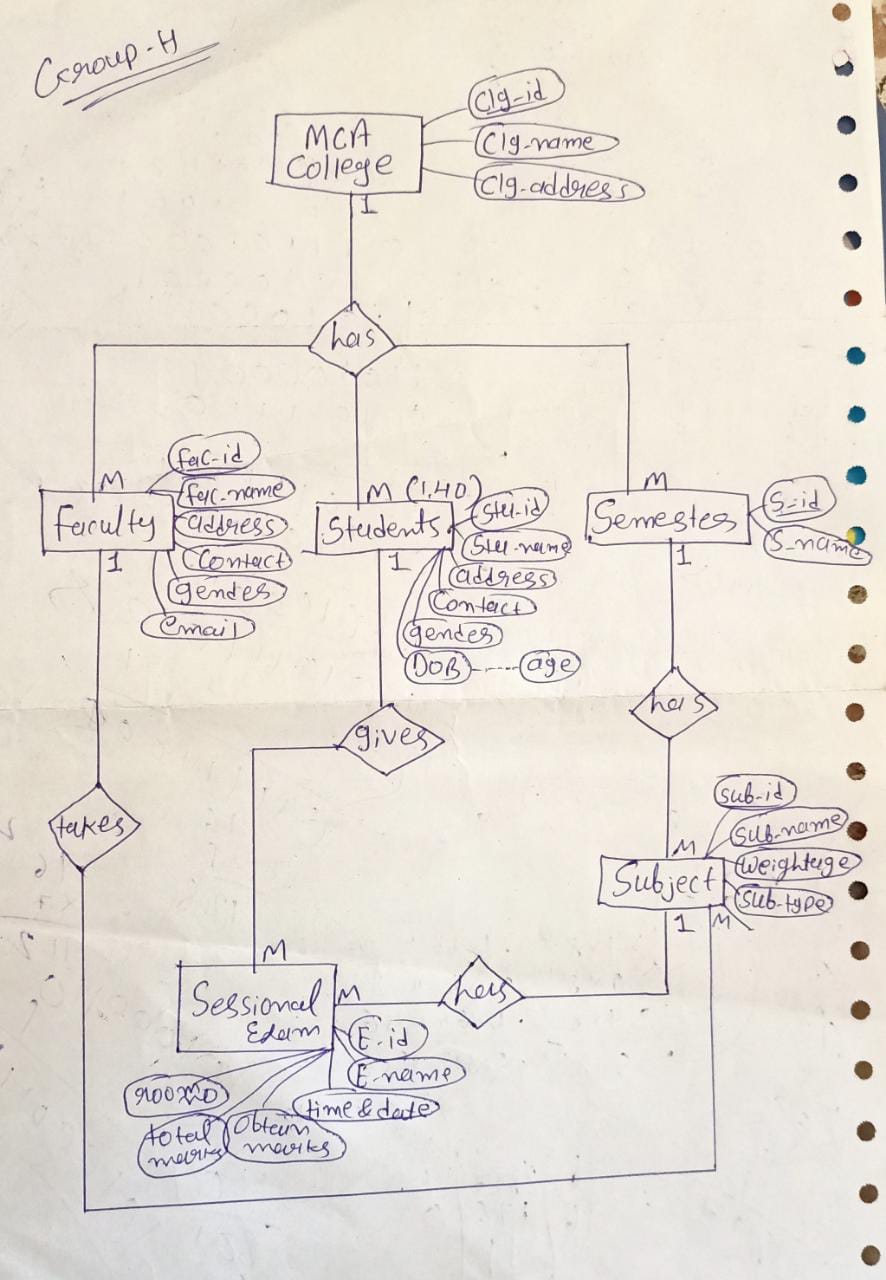 Group-H
MCA
College
Clg-id
Clg-name
Clg-address
1
has
M
M (1,40)
M
Faculty
fac-id
fac-name
address
Contact
gender
email
1
Students
Stu-id
Stu-name
address
Contact
gender
DOB
age
1
Semester
S-id
S-name
1
gives
has
takes
M
Subject
sub-id
sub-name
weightage
sub-type
1
M
M
Sessional
Exam
M
has
E-id
E-name
time & date
room no
total
marks
Obtain
marks